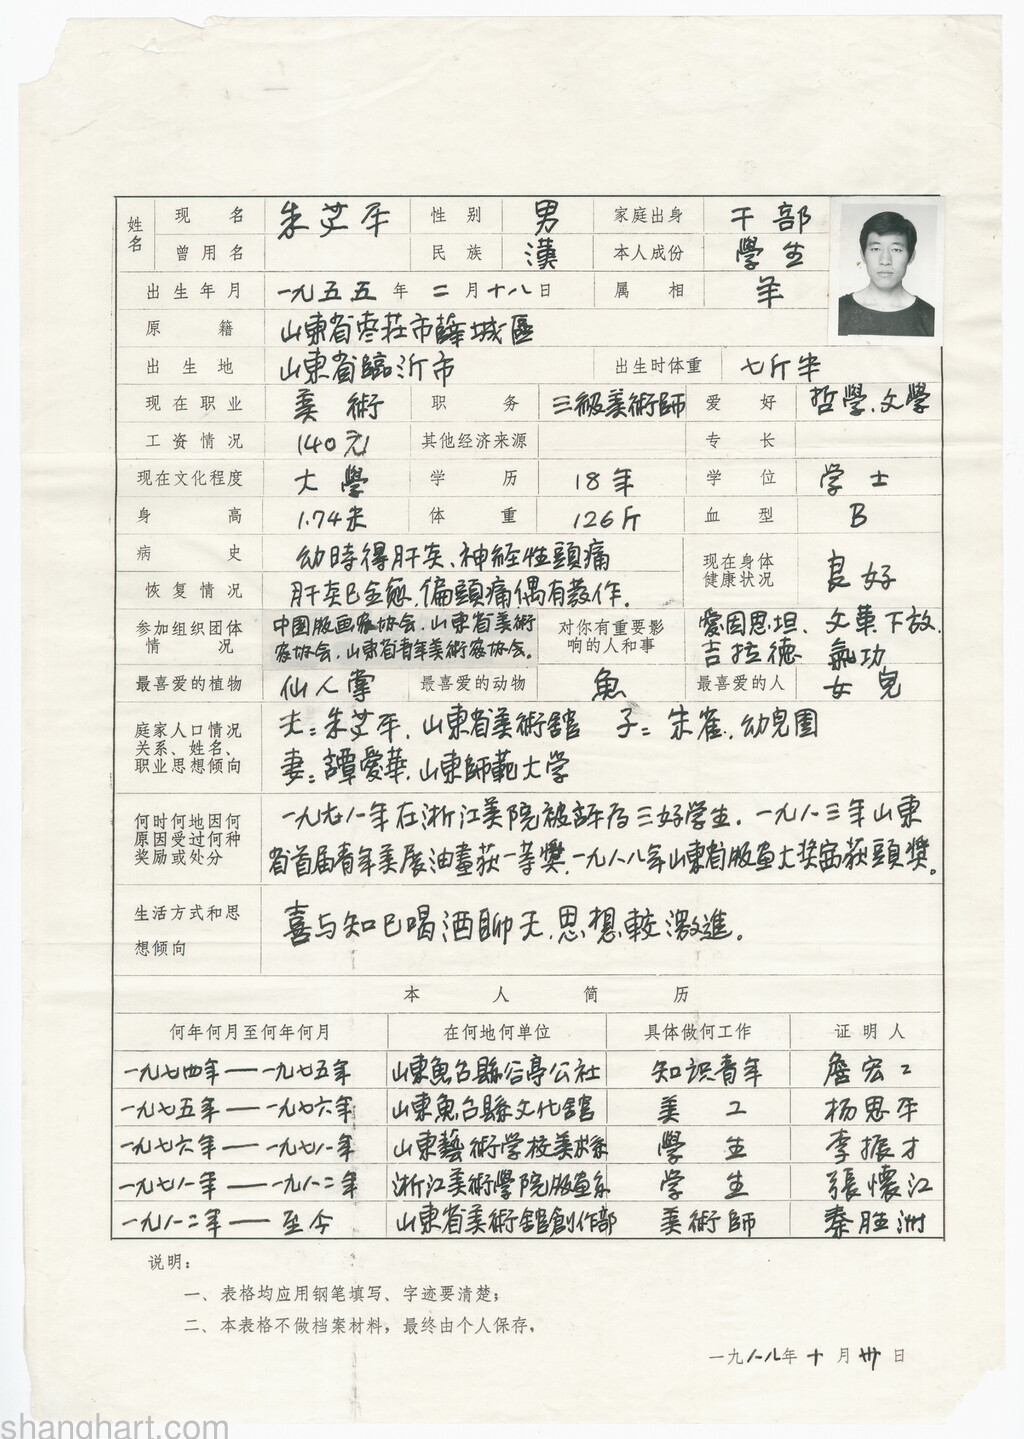 姓名 现名 朱艾平 性别 男 家庭出身 干部
曾用名 民族 漢 本人成份 學生
出生年月 一九五五年二月十八日 属相 羊
原籍 山東省枣莊市薛城區
出生地 山東省臨沂市 出生时体重 七斤半
现在职业 美術 职务 三級美術師 爱好 哲學、文學
工资情况 140元 其他经济来源 专长
现在文化程度 大學 学历 18年 学位 学士
身高 1.74米 体重 126斤 血型 B
病史 幼時得肝炎、神经性頭痛 现在身体健康状况 良好
恢复情况 肝炎已全愈,偏頭痛偶有發作。
参加组织团体情况 中国版画家协会,山東省美術家协会,山東省青年美術家协会。 对你有重要影响的人和事 愛因思坦、文革、下放、吉拉德 氣功
最喜爱的植物 仙人掌 最喜爱的动物 魚 最喜爱的人 女兒
庭家人口情况 夫:朱艾平,山東省美術館 子:朱雀,幼兒園
关系、姓名、
职业思想倾向 妻:譚愛華,山東師範大学
何时何地因何 一九七八年在浙江美院被評為三好学生,一九八三年山東
原因受过何种
奖励或处分 省首届青年美展油畫获一等獎,一九八八年山東省版画大奖宙获頭獎。
生活方式和思
想倾向 喜与知已喝酒聊天,思想較激進。
本人简历
何年何月至何年何月 在何地何单位 具体做何工作 证明人
一九七四年——一九七五年 山東魚台縣谷亭公社 知识青年 詹宏工
一九七五年——一九七六年 山東魚台縣文化館 美工 杨思平
一九七六年——一九七八年 山東藝術学校美术系 學生 李振才
一九七八年——一九八二年 浙江美術學院版画系 学生 張懷江
一九八二年——至今 山東省美術館創作部 美術師 秦胜洲
说明:
一、表格均应用钢笔填写、字迹要清楚;
二、本表格不做档案材料,最终由个人保存,
一九八八年十月卅日
shanghart.com